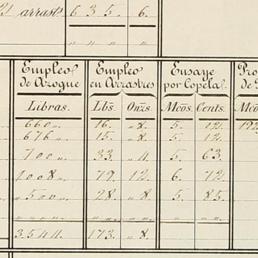 arrast 635. 6.
" " " "
Empleo de Azogue Empleo en Arrastres Ensaye por Copela
Libras. Lbs. Onzs. Mcos. Cents.
660 " 16. " 8. 5. 12.
676 " 15. " 8. 5. 12
700 " 33. " 4. 5. 63.
1008. 79. 12 6. 72
500 " 28. " 8. 5. 85.
" " " " " "
3544. 173. " 8.